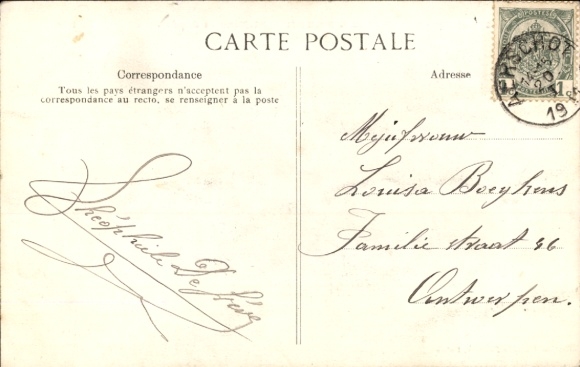 CARTE POSTALE
Correspondance
Tous les pays étrangers n'acceptent pas la
correspondance au recto, se renseigner à la poste
Théophile De
Adresse
Mejufvrouw
Louisa Boeykens
Familie straat 46
Antwerpen.
AERSCHOT
20
19
1